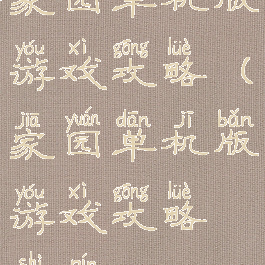 家园单机版
yóu xì gōng lüè
游戏攻略（
jiā yuán dān jī bǎn
家园单机版
yóu xì gōng lüè
游戏攻略
shì pín